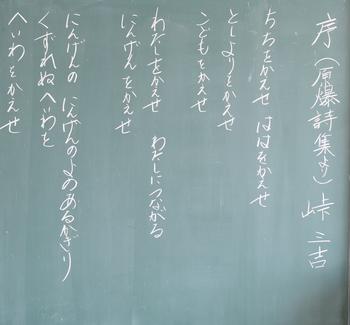 序（原爆詩集より） 峠 三吉
ちちをかえせ ははをかえせ
としよりをかえせ
こどもをかえせ
わたしをかえせ わたしにつながる
にんげんをかえせ
にんげんの にんげんのよのあるかぎり
くずれぬへいわを
へいわをかえせ